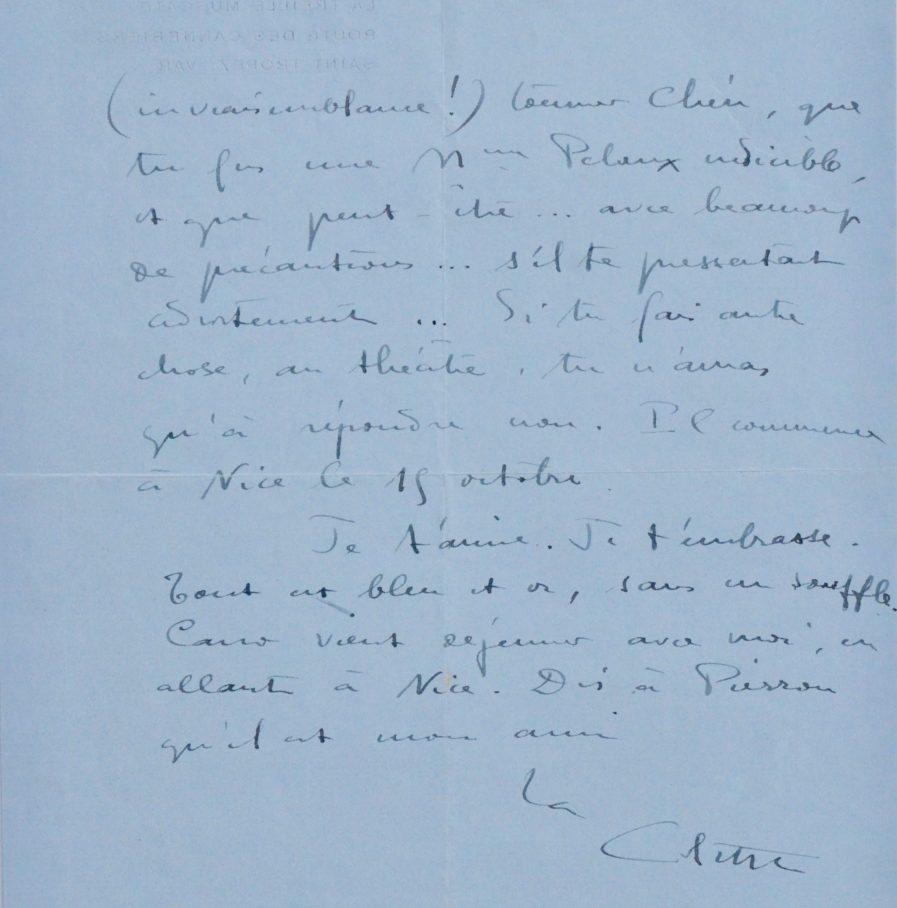 LA TREILLE MUSCATE
ROUTE DES CANNEBIERS
SAINT-TROPEZ VAR
(invraisemblance!) tourner Chéri, que
tu fus une Mme Peloux indicible,
et que peut-être... avec beaucoup
de précautions... s'il te pressentait
adroitement... Si tu fais autre
chose, au théâtre, tu n'auras
qu'à répondre non. Il commence
à Nice le 15 octobre.
Je t'aime. Je t'embrasse.
Tout est bleu et or, sans un souffle.
Carco vient déjeuner avec moi, en
allant à Nice. Dis à Pierron
qu'il est mon ami
La
Colette